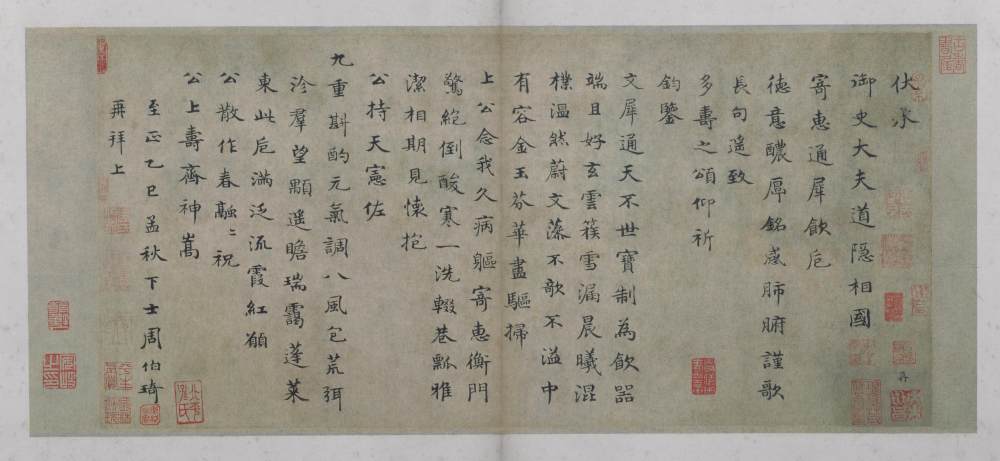 伏承
御史大夫道隐相國
寄惠通犀飲卮
德意醲厚銘感肺腑謹歌
長句遥致
多壽之頌仰祈
鈞鑒
文犀通天不世寶制為飲器
端且好玄雲簇雪漏晨曦混
樸溫然蔚文藻不歌不溢中
有容金玉芬華盡驅掃
上公念我久病軀寄惠衡門
驚絕倒酸寒一洗輟巷瓢雅
潔相期見懷抱
公持天憲佐
九重斟酌元氣調八風包荒弭
沴羣望顒遥瞻瑞靄蓬萊
東此卮滿泛流霞紅願
公散作春融〻祝
公上壽齊神嵩
至正乙巳孟秋下士周伯琦
再拜上